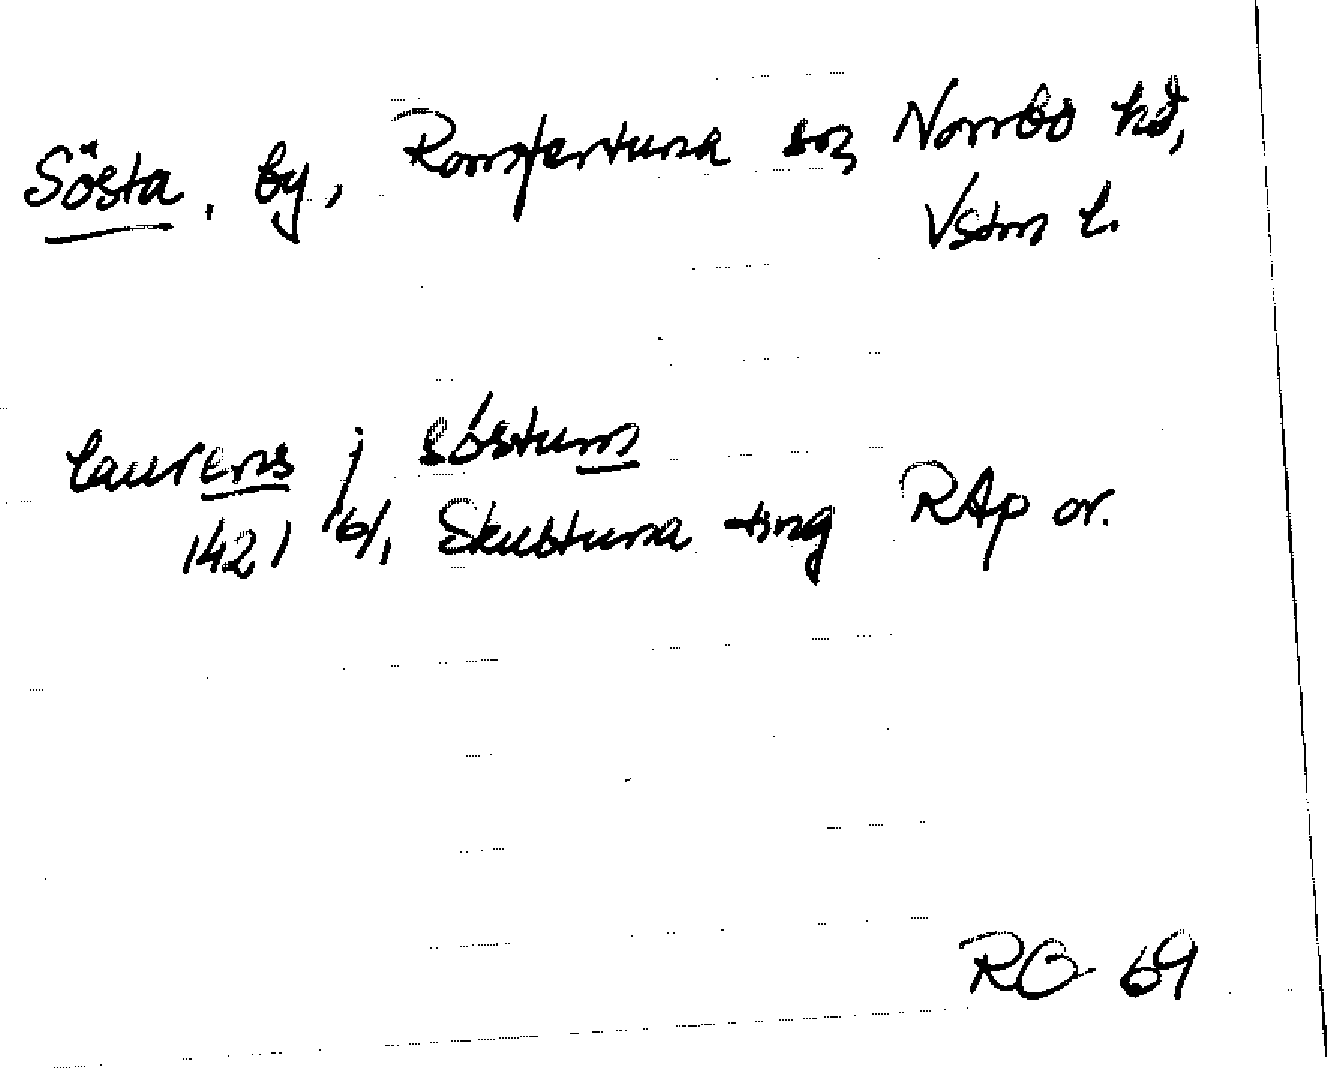 Sösta, by, Romfertuna sn, Norrbo hd,
Vstm l.
laurens j söstum
1421 16/1 Skultuna ting RAp or.
RO 69